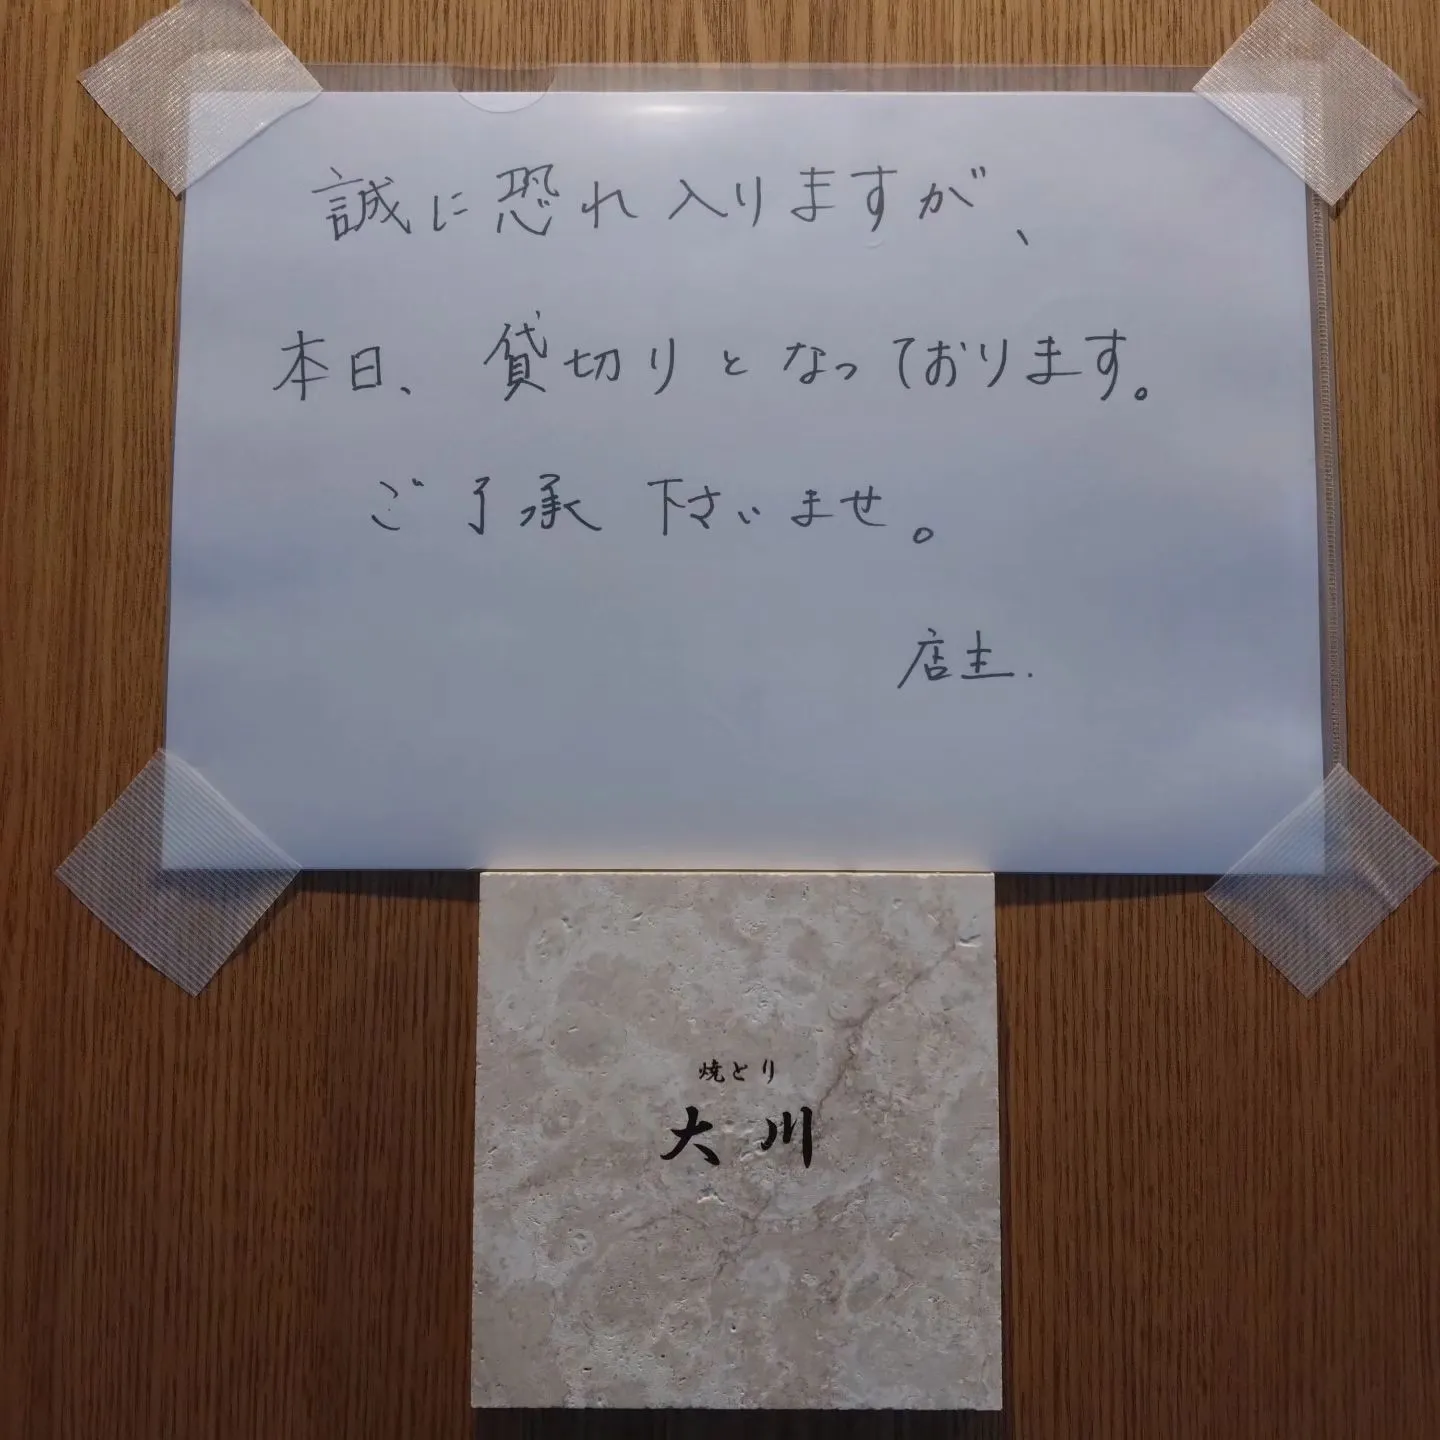 誠に恐れ入りますが、
本日、貸切りとなっております。
ご了承下さいませ。
店主.
焼とり
大川